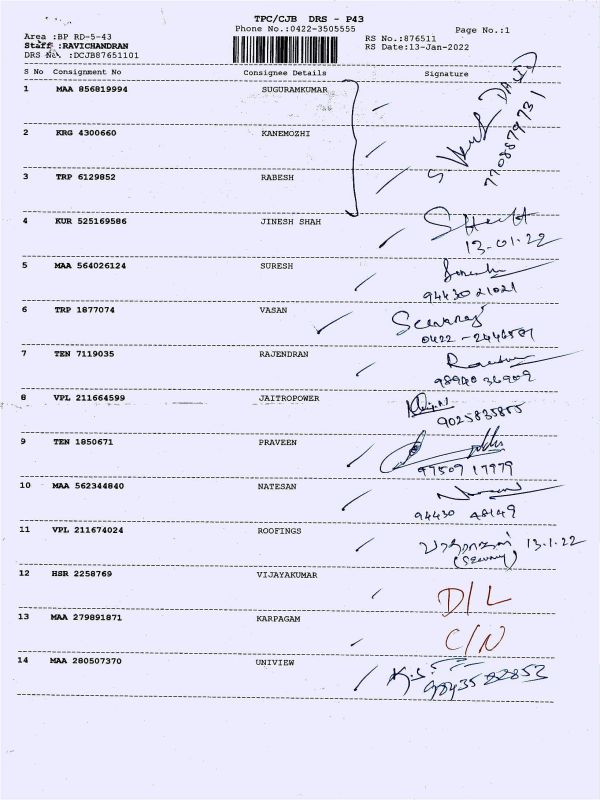 TPC/CJB DRS - P43
Phone No.:0422-3505555
Page No.:1
Area :BP RD-5-43
RS No.:876511
Staff :RAVICHANDRAN
RS Date:13-Jan-2022
DRS No. :DCJB87651101
S No Consignment No Consignee Details Signature
1 MAA 856819994 SUGURAMKUMAR
7708879731
2 KRG 4300660 KANEMOZHI
3 TRP 6129852 RABESH
4 KUR 525169586 JINESH SHAH
13.01.22
5 MAA 564026124 SURESH
94430 21021
6 TRP 1877074 VASAN
7 TEN 7119035 RAJENDRAN
98940 36909
8 VPL 211664599 JAITROPOWER
9025835855
9 TEN 1850671 PRAVEEN
97509 17979
10 MAA 562344840 NATESAN
94430 48149
11 VPL 211674024 ROOFINGS 13.1.22
12 HSR 2258769 VIJAYAKUMAR D/L
13 MAA 279891871 KARPAGAM C/N
14 MAA 280507370 UNIVIEW